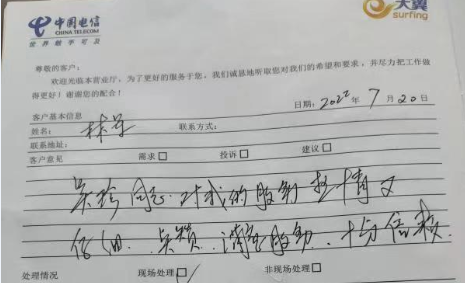 中国电信
CHINA TELECOM
世界触手可及
天翼
surfing
尊敬的客户：
欢迎光临本营业厅，为了更好的服务于您，我们诚恳地听取您对我们的希望和要求，并尽力把工作
做得更好！谢谢您的配合！
日期：2022年7月20日
客户基本信息
姓名： 联系方式：
联系地址：
客户意见 需求□ 投诉□ 建议□
同志 对我的服务 热情又
仔细 服务
处理情况 现场处理□ 非现场处理□